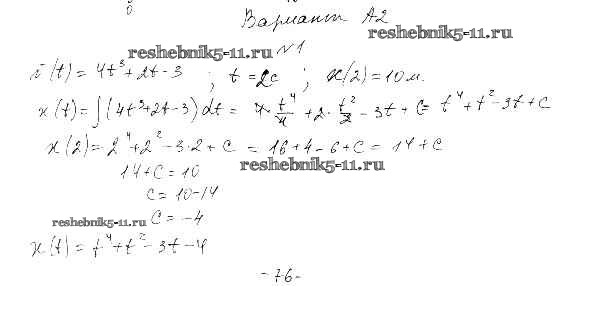 Вариант А2
reshebnik5-11.ru reshebnik5-11.ru
№1
v(t) = 4t³+2t-3 ; t = 2c ; x(2) = 10 м.
x(t) = ∫(4t³+2t-3)dt = 4·t⁴/4 + 2·t²/2 - 3t + C = t⁴+t²-3t+C
x(2) = 2⁴+2²-3·2+C = 16+4-6+C = 14+C
14+C = 10
reshebnik5-11.ru
C = 10-14
reshebnik5-11.ru
C = -4
x(t) = t⁴+t²-3t-4
-76-